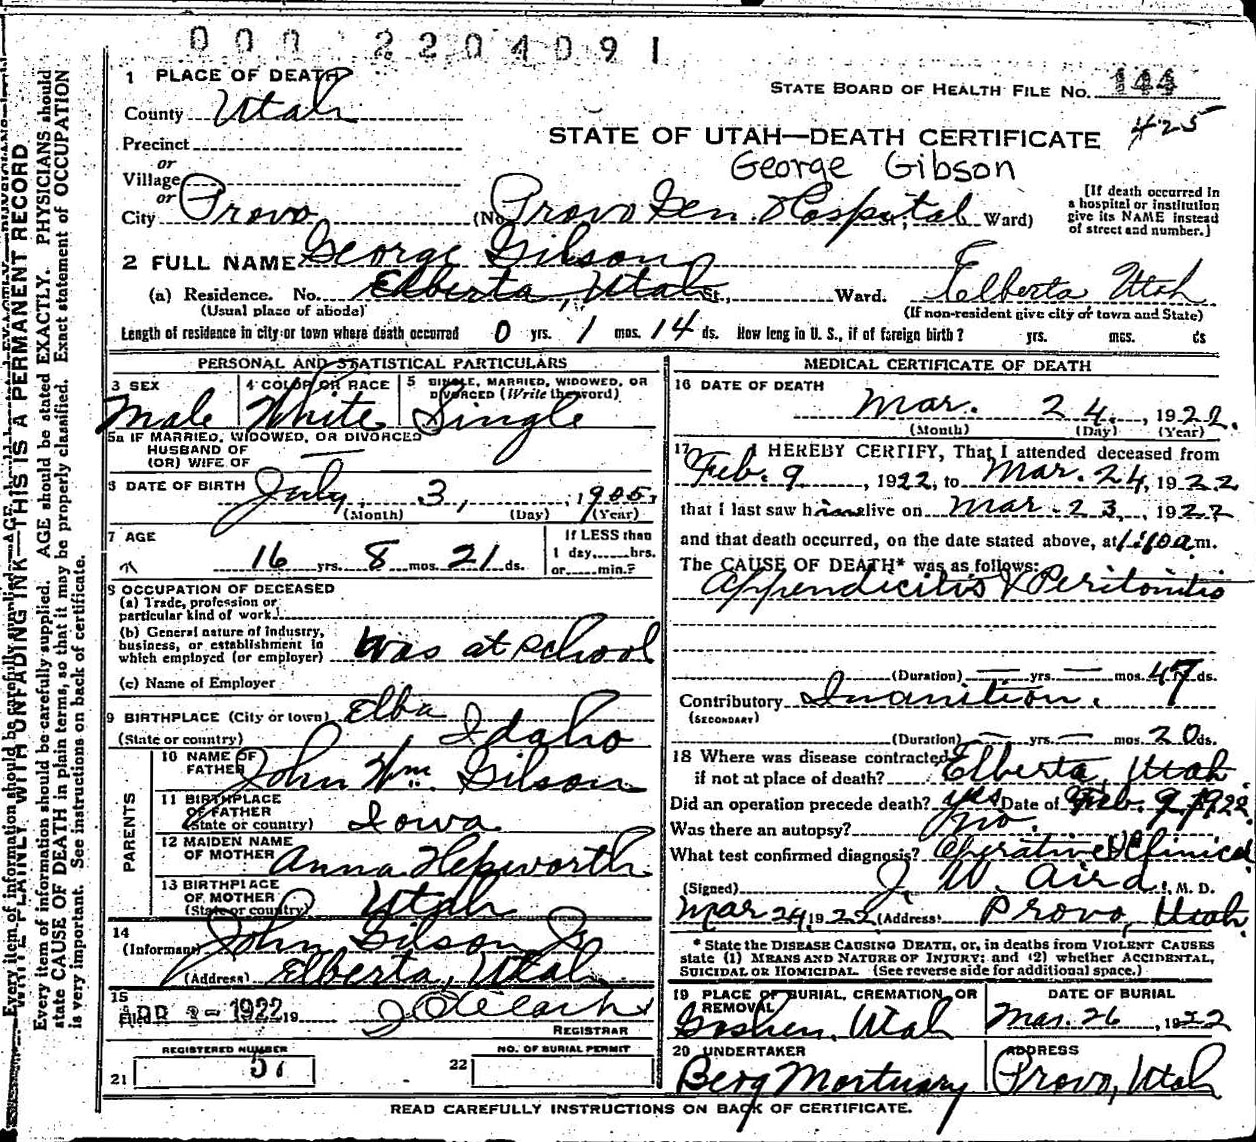 000 2204091
1 PLACE OF DEATH
STATE BOARD OF HEALTH FILE No. 144
County Utah
425
STATE OF UTAH—DEATH CERTIFICATE
Precinct
George Gibson
or
Village
or
City Provo (No. Provo Gen. Hospital St., Ward)
[If death occurred in
a hospital or institution
give its NAME instead
of street and number.]
2 FULL NAME George Gibson
(a) Residence. No. Elberta, Utah St., Ward. Elberta Utah
(Usual place of abode) (If non-resident give city or town and State)
Length of residence in city or town where death occurred 0 yrs. 1 mos. 14 ds. How long in U. S., if of foreign birth? yrs. mos. ds
PERSONAL AND STATISTICAL PARTICULARS
3 SEX
Male
4 COLOR OR RACE
White
5 SINGLE, MARRIED, WIDOWED, OR
DIVORCED (Write the word)
Single
5a IF MARRIED, WIDOWED, OR DIVORCED
HUSBAND OF
(OR) WIFE OF —
6 DATE OF BIRTH July 3, 1905,
(Month) (Day) (Year)
7 AGE
16 yrs. 8 mos. 21 ds.
If LESS than
1 day, hrs.
or min.?
8 OCCUPATION OF DECEASED
(a) Trade, profession or
particular kind of work
(b) General nature of industry,
business, or establishment in
which employed (or employer) Was at school
(c) Name of Employer
9 BIRTHPLACE (City or town) Elba
(State or country) Idaho
PARENTS
10 NAME OF
FATHER John Wm. Gibson
11 BIRTHPLACE
OF FATHER
(State or country) Iowa
12 MAIDEN NAME
OF MOTHER Anna Hepworth
13 BIRTHPLACE
OF MOTHER
(State or country) Utah
14
(Informant) John Gibson Jr
(Address) Elberta, Utah
15
Filed APR 1922 19
REGISTRAR
REGISTERED NUMBER
21 57
NO. OF BURIAL PERMIT
22
MEDICAL CERTIFICATE OF DEATH
16 DATE OF DEATH
Mar. 24, 1922.
(Month) (Day) (Year)
17 I HEREBY CERTIFY, That I attended deceased from
Feb. 9, 1922, to Mar. 24, 1922
that I last saw him alive on Mar. 23, 1922
and that death occurred, on the date stated above, at m.
The CAUSE OF DEATH* was as follows:
Appendicitis & Peritonitis
(Duration) — yrs. — mos. 47 ds.
Contributory Inanition.
(SECONDARY)
(Duration) — yrs. — mos. 20 ds.
18 Where was disease contracted
if not at place of death? Elberta, Utah.
Did an operation precede death? yes Date of Feb. 9, 1922.
Was there an autopsy? no.
What test confirmed diagnosis? Operative & Clinical
(Signed) J. W. Aird, M. D.
Mar 24, 1922 (Address) Provo, Utah.
* State the DISEASE CAUSING DEATH, or, in deaths from VIOLENT CAUSES
state (1) MEANS AND NATURE OF INJURY; and (2) whether ACCIDENTAL,
SUICIDAL OR HOMICIDAL. (See reverse side for additional space.)
19 PLACE OF BURIAL, CREMATION, OR
REMOVAL
Goshen, Utah
DATE OF BURIAL
Mar. 26, 1922
20 UNDERTAKER
Berg Mortuary
ADDRESS
Provo, Utah
READ CAREFULLY INSTRUCTIONS ON BACK OF CERTIFICATE.
WRITE PLAINLY WITH UNFADING INK—THIS IS A PERMANENT RECORD
Every item of information should be carefully supplied. AGE should be stated EXACTLY. PHYSICIANS should
state CAUSE OF DEATH in plain terms, so that it may be properly classified. Exact statement of OCCUPATION
is very important. See instructions on back of certificate.